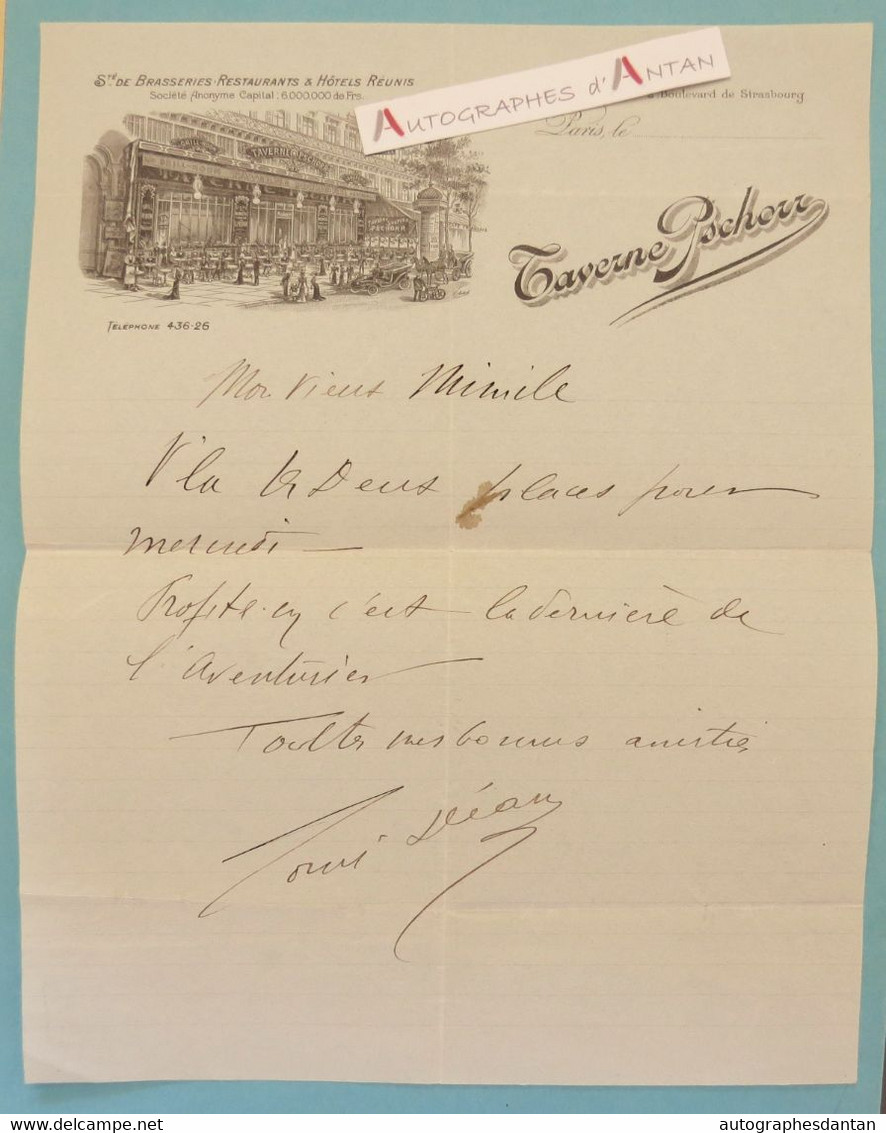 Sté DE BRASSERIES-RESTAURANTS & HÔTELS RÉUNIS
Société Anonyme Capital: 6.000.000 de Frs.
AUTOGRAPHES d'ANTAN
Boulevard de Strasbourg
Paris, le
TAVERNE PSCHORR
Taverne Pschorr
TÉLÉPHONE 436-26
Mon vieux Mimile
V'la les Deux places pour
mercredi —
Profite-en c'est la dernière de
l'Aventurier
Toutes mes bonnes amitiés
Louis
Delcampe.net
autographesdantan